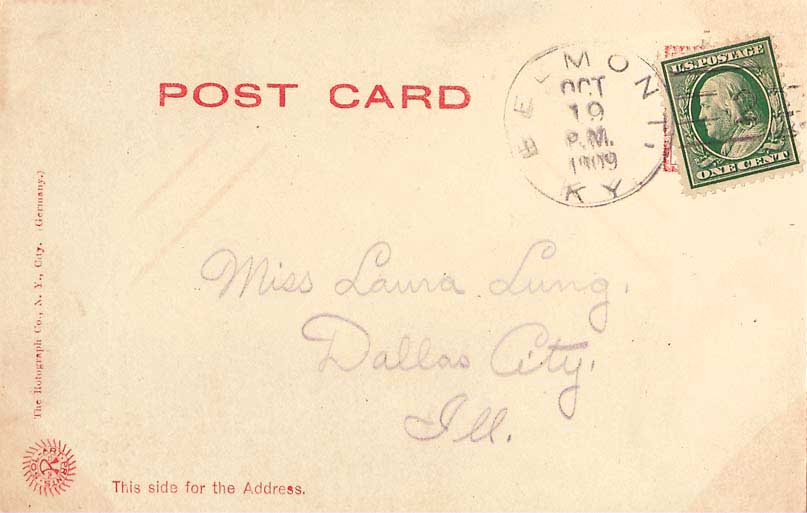 POST CARD
BELMONT, KY
OCT
19
P.M.
1909
U.S. POSTAGE
ONE CENT
Miss Laura Lung.
Dallas City.
Ill.
The Rotograph Co., N. Y., City. (Germany.)
This side for the Address.